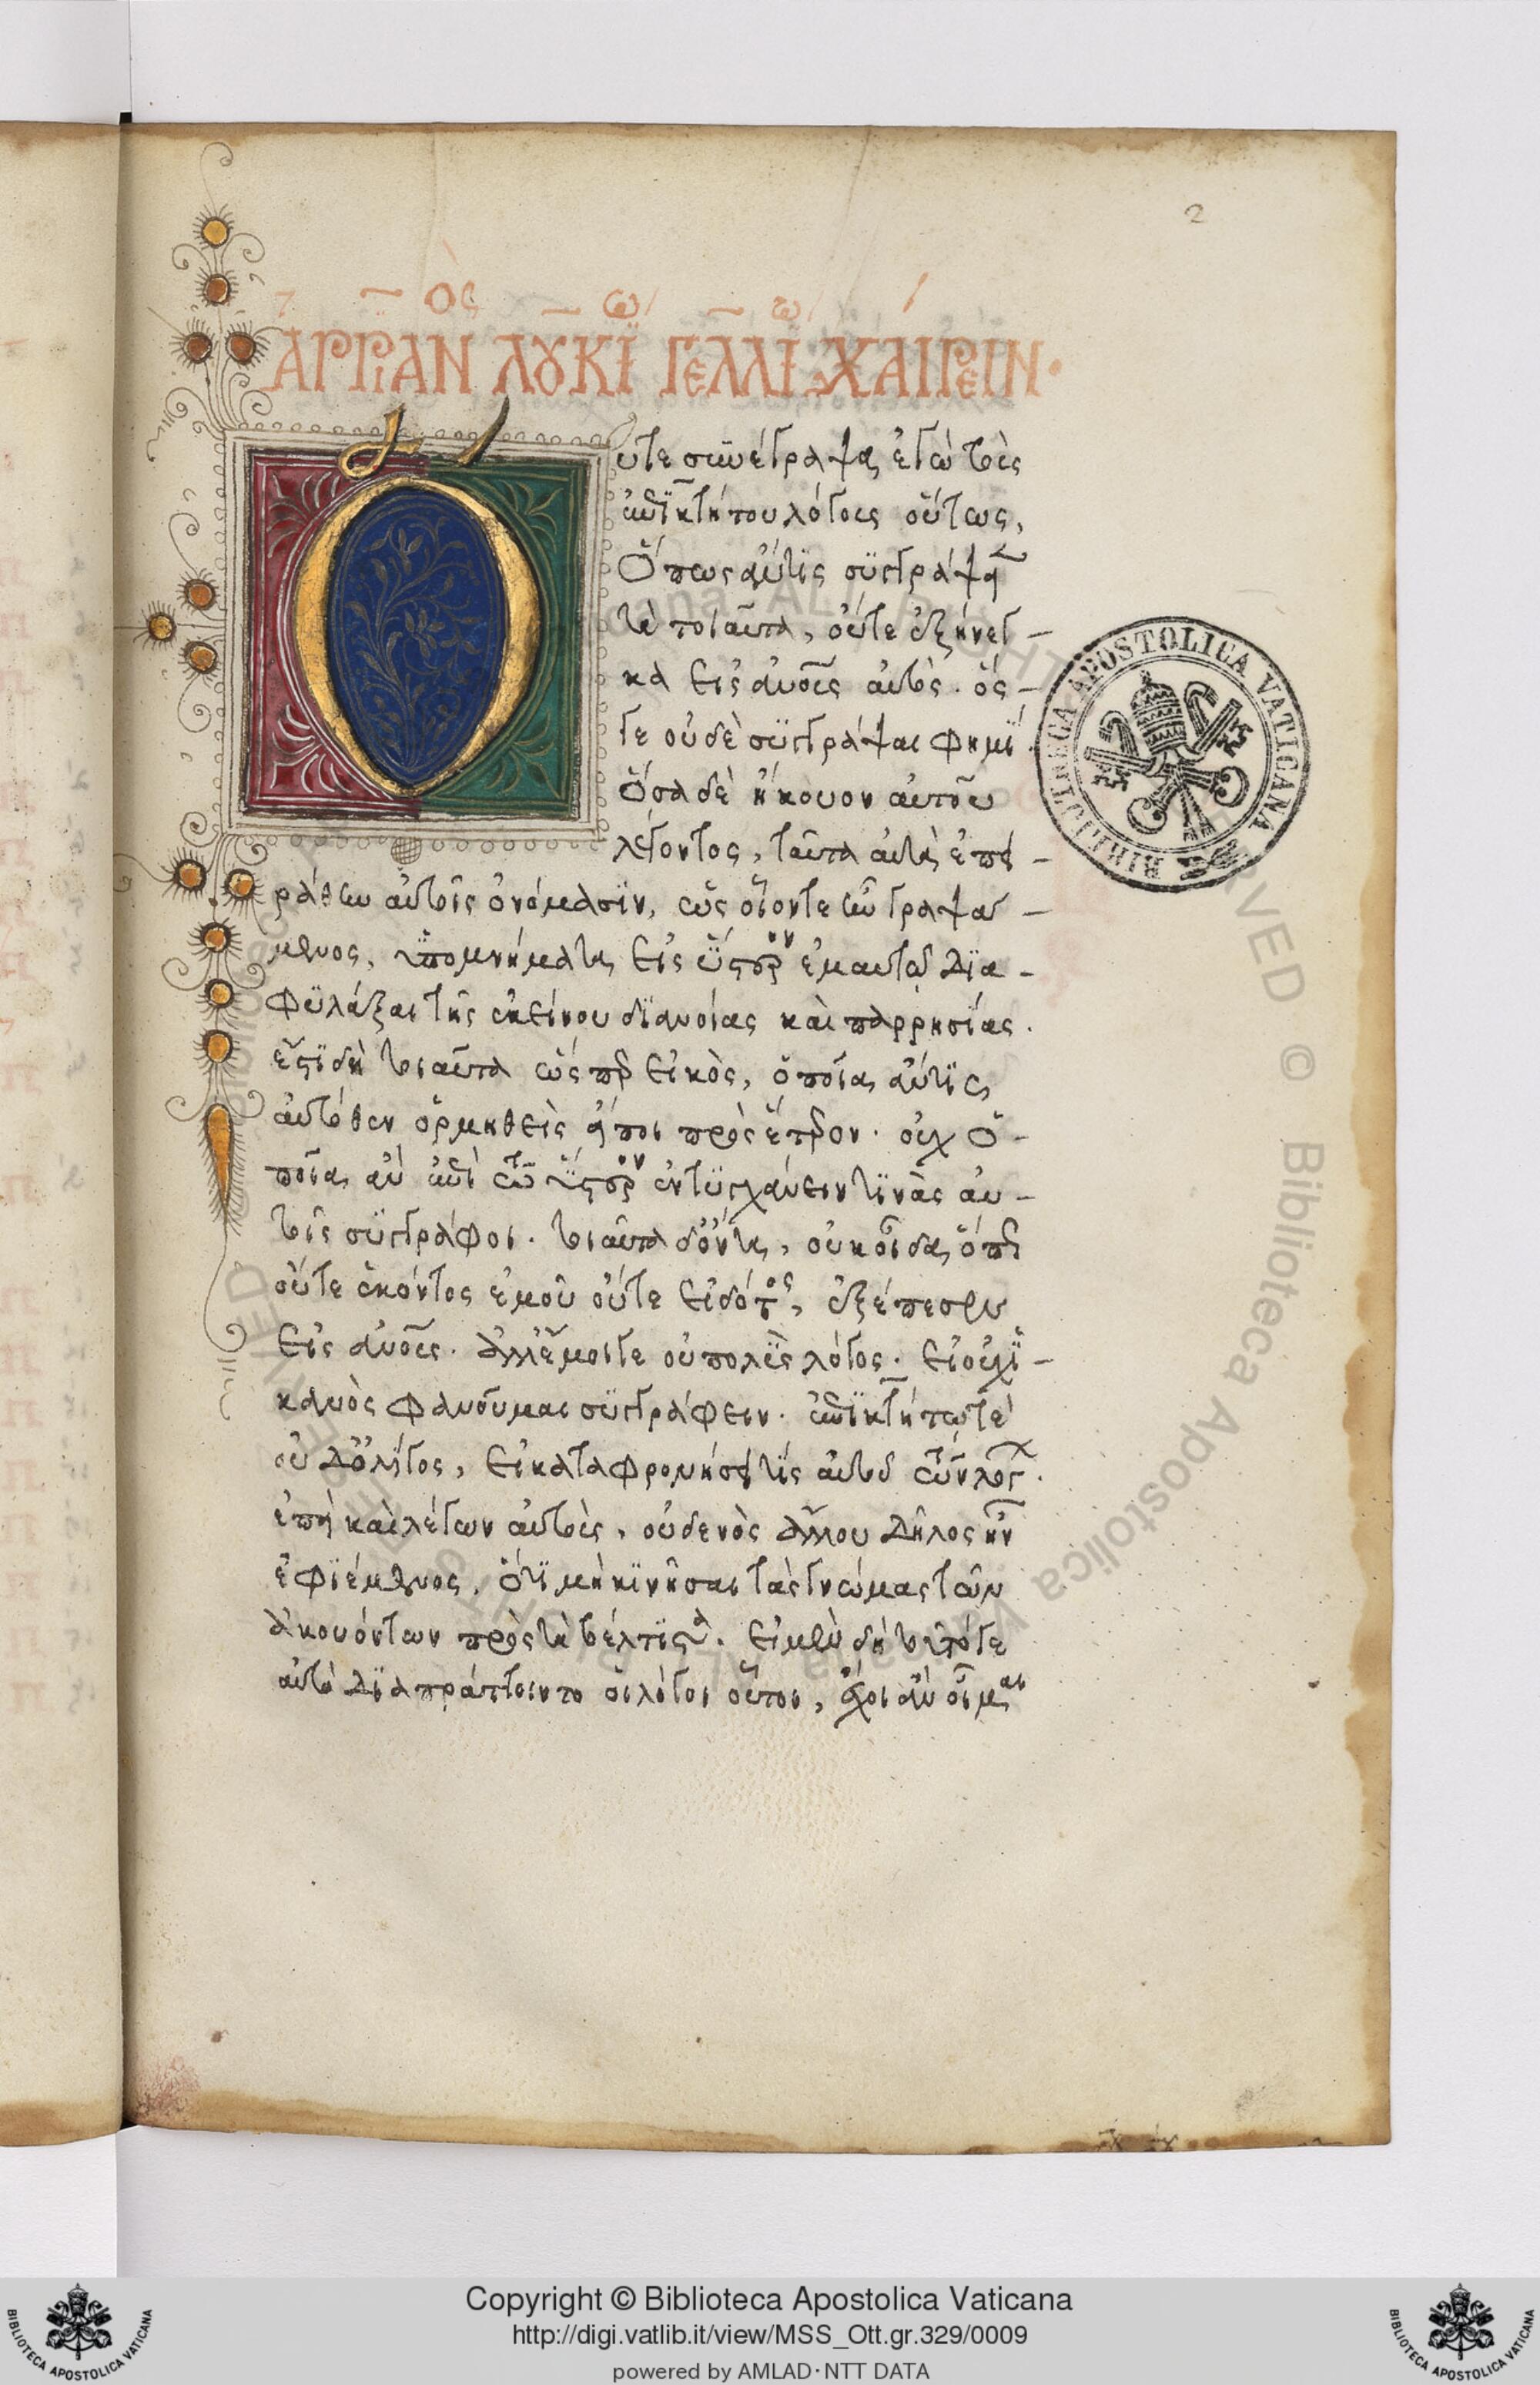 2
ἈΡΡΙΑΝὸς ΛΟΥΚΊῳ ΓΕΛΛΊῳ ΧΑΊΡΕΙΝ·
Οὔτε συνέγραψα ἐγὼ τοὺς
ἐπικτήτου λόγους οὕτως,
ὅπως ἄν τις συγγράψαι
τὰ τοιαῦτα, οὔτε ἐξήνεγ-
κα εἰς ἀνους αὐτός· ὅς-
γε οὐδὲ συγγράψαι φημί·
Ὅσα δὲ ἤκουον αὐτοῦ
λέγοντος, ταῦτα αὐτὰ ἐπει-
ράθην αὐτοῖς ὀνόμασιν, ὡς οἷόν τε ἦν γραψά-
μενος, ὑπομνήματα εἰς ὕστερον ἐμαυτῷ δια-
φυλάξαι τῆς ἐκείνου διανοίας καὶ παρρησίας.
ἔστι δὴ τοιαῦτα ὥσπερ εἰκὸς, ὁποῖα ἄν τις
αὐτόθεν ὁρμηθεὶς εἴποι πρὸς ἕτερον· οὐχ ὁ-
ποῖα ἂν ἐπὶ τῷ ὕστερον ἐντυγχάνειν τινὰς αὐ-
τοῖς συγγράφοι. τοιαῦτα δ' ὄντα, οὐκ οἶδα ὅπως
οὔτε ἑκόντος ἐμοῦ οὔτε εἰδότος, ἐξέπεσεν
εἰς ἀνους. ἀλλ' ἔμοιγε οὐ πολὺς λόγος· εἰ οὐχ ἱ-
κανὸς φανοῦμαι συγγράφειν. ἐπικτήτῳ τε
οὐδ' ὀλίγος, εἰ καταφρονήσει τις αὐτοῦ τῶν λόγων·
ἐπεὶ καὶ λέγων αὐτοὺς, οὐδενὸς ἄλλου δῆλος ἦν
ἐφιέμενος, ὅτι μὴ κινῆσαι τὰς γνώμας τῶν
ἀκουόντων πρὸς τὰ βέλτιστα. εἰ μὲν δὴ τοῦτό γε
αὐτὸ διαπράττοιντο οἱ λόγοι οὗτοι, ἔχοι ἂν οἶμαι
BIBLIOTECA APOSTOLICA VATICANA
Copyright © Biblioteca Apostolica Vaticana
http://digi.vatlib.it/view/MSS_Ott.gr.329/0009
powered by AMLAD·NTT DATA
BIBLIOTECA APOSTOLICA VATICANA
BIBLIOTECA APOSTOLICA VATICANA